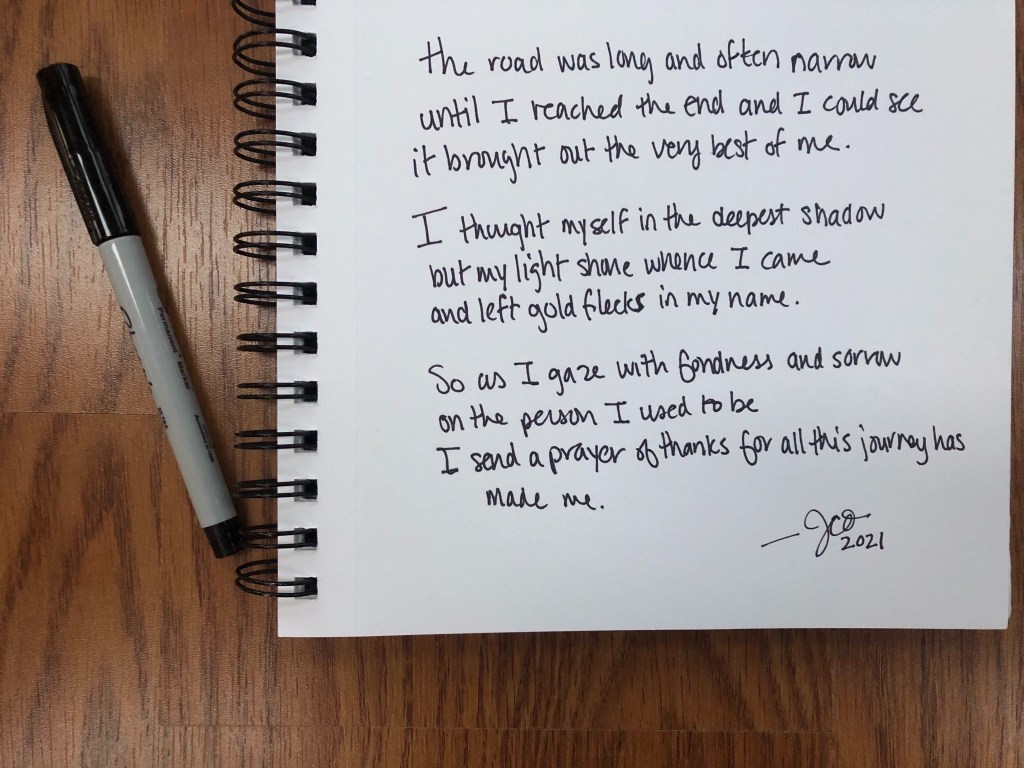 the road was long and often narrow
until I reached the end and I could see
it brought out the very best of me.
I thought myself in the deepest shadow
but my light shone whence I came
and left gold flecks in my name.
So as I gaze with fondness and sorrow
on the person I used to be
I send a prayer of thanks for all this journey has
made me.
— JCO
2021
Permanent Marker